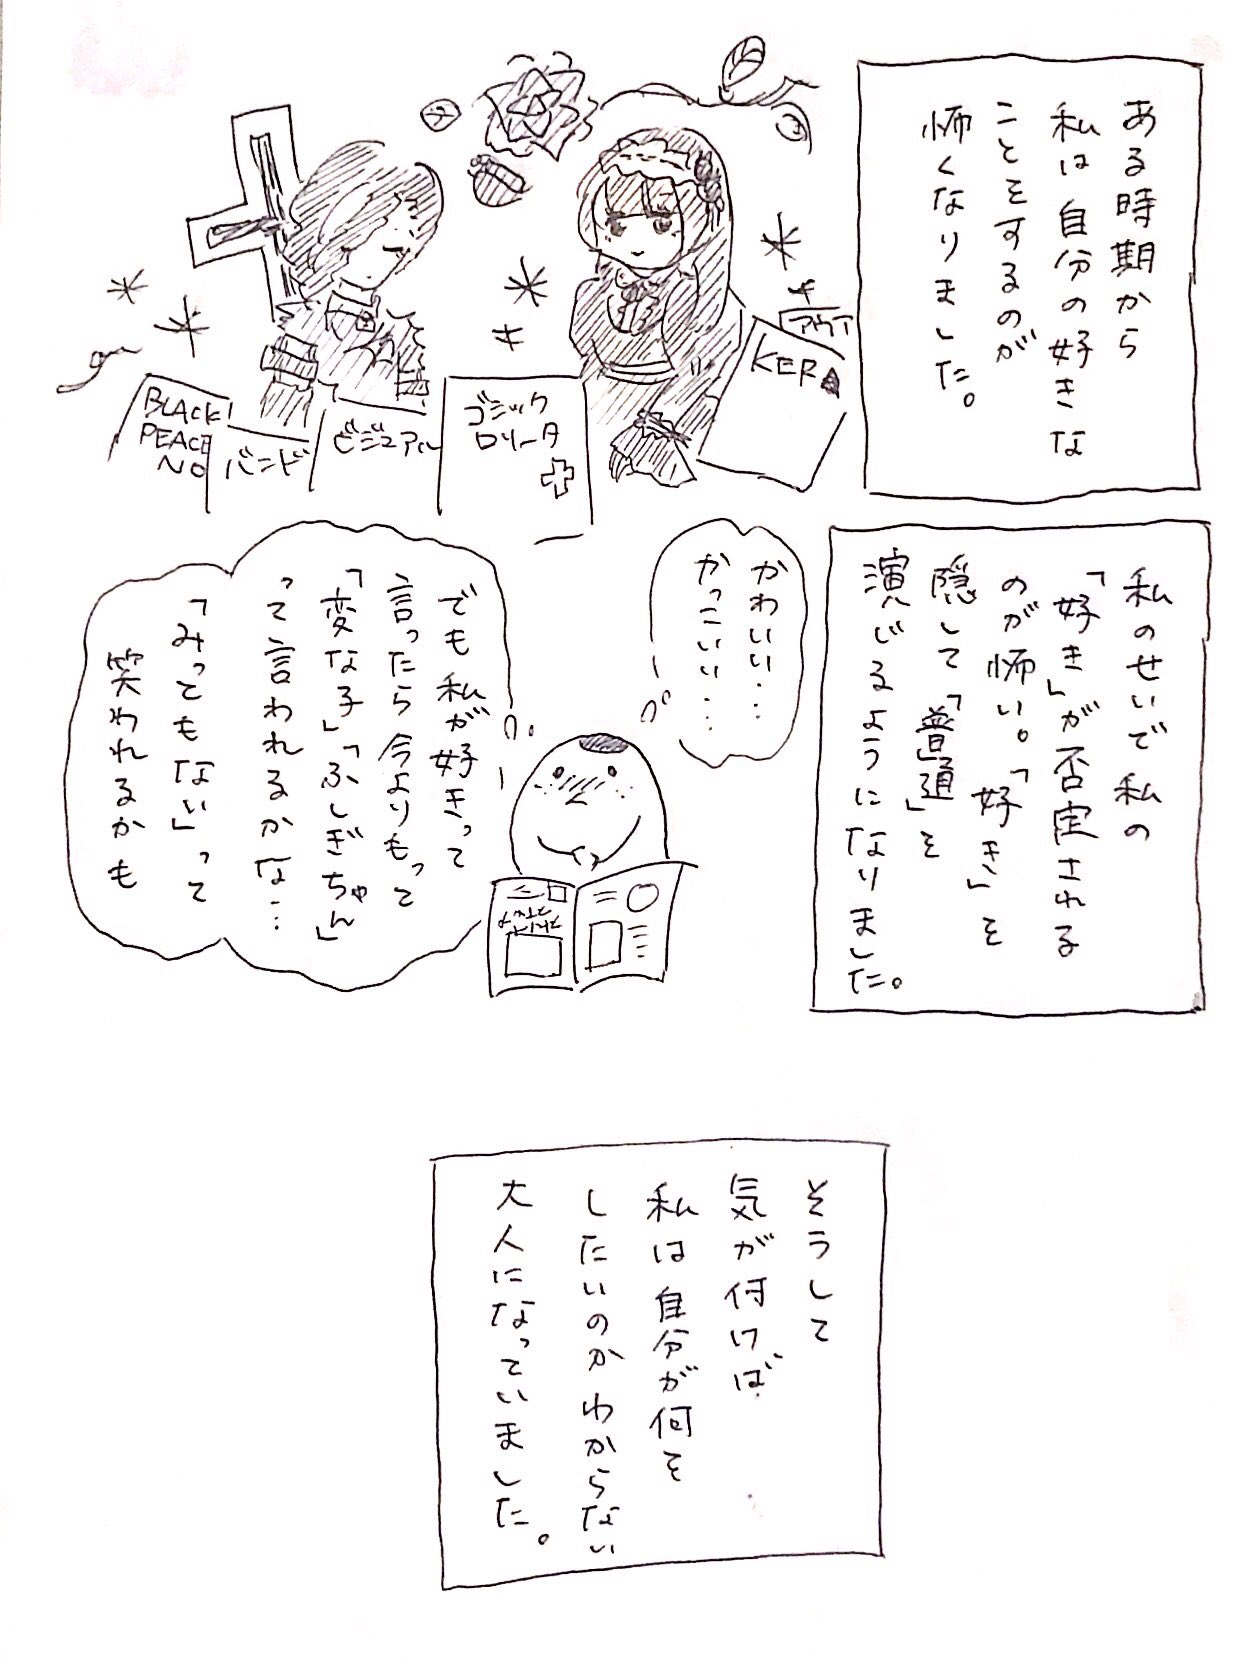 ある時期から
私は自分の好きな
ことをするのが
怖くなりました。
アウア
KERA
ゴシック
ロリータ
ビジュアル
バンド
BLACK
PEACE
NO
私のせいで私の
「好き」が否定される
のが怖い。「好き」を
隠して「普通」を
演じるようになりました。
かわいい…
かっこいい…
でも私が好きって
言ったら今よりもって
「変な子」「ふしぎちゃん」
って言われるかな…
「みっともない」って
笑われるかも
そうして
気が付けば
私は自分が何を
したいのかわからない
大人になっていました。